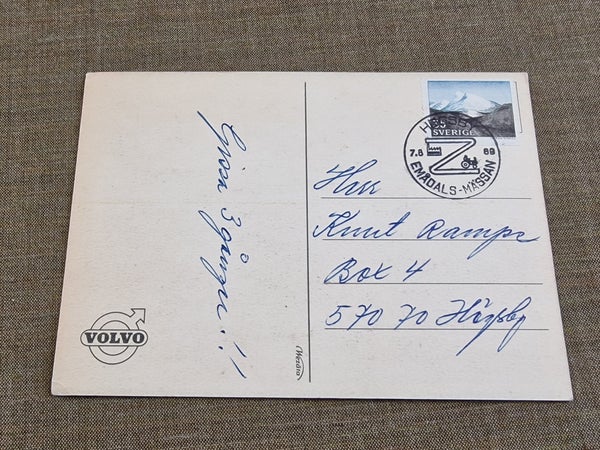 Gissa 3 gånger!!
VOLVO
Wezäta
SVERIGE
7.6 69
EMÅDALS-MÄSSAN
Herr
Knut Rampe
Box 4
570 70 Högsby